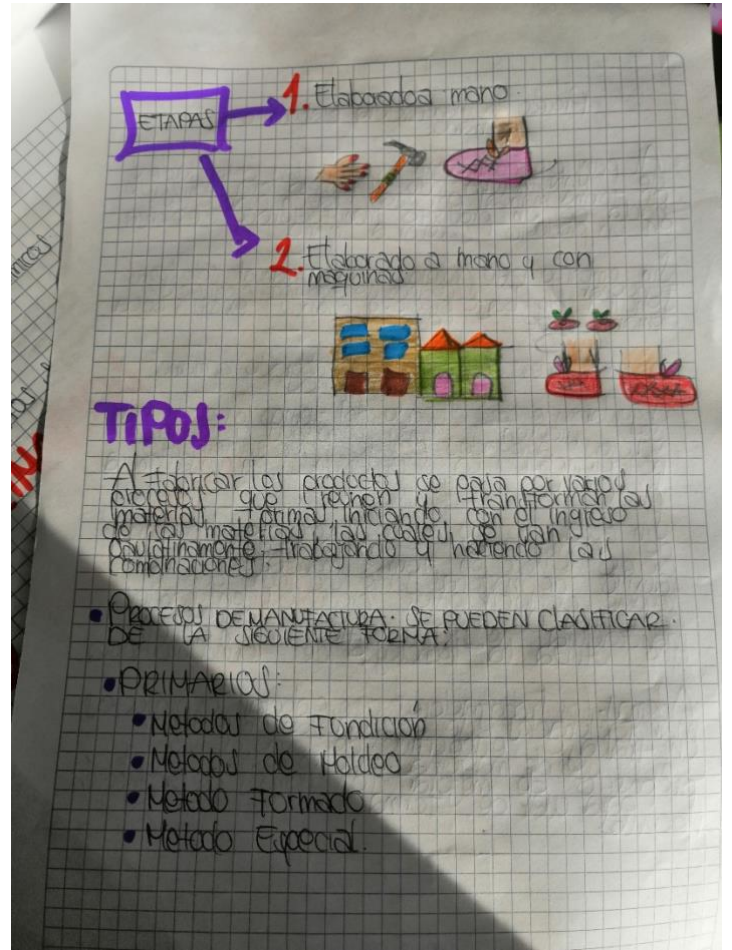 ETAPAS
1. Elaborado a mano.
2. Elaborado a mano y con
maquinas
TIPOS:
Al Fabricar los productos se pasa por varios
procesos que reunen y transforman las
materias primas iniciando con el ingreso
de las materias las cuales se van
paulatinamente trabajando y haciendo las
combinaciones.
• PROCESOS DE MANUFACTURA. SE PUEDEN CLASIFICAR.
DE LA SIGUIENTE FORMA:
• PRIMARIOS:
• Metodos de Fundición
• Metodos de Moldeo
• Metodo Formado
• Metodo Especial.
nicos